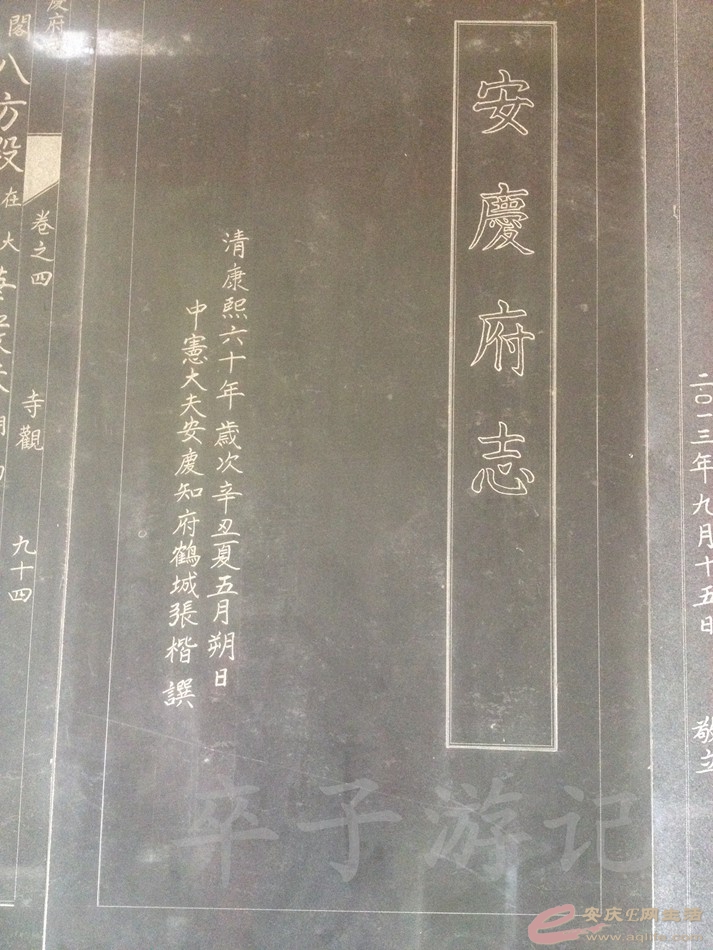 二〇一三年九月十五日 敬立
安慶府志
清康熙六十年歲次辛丑夏五月朔日
中憲大夫安慶知府鶴城張楷譔
卷之四 寺觀 九十四
慶府
閣八方殿在大
卒子游记
安庆E网生活
www.aqlife.com